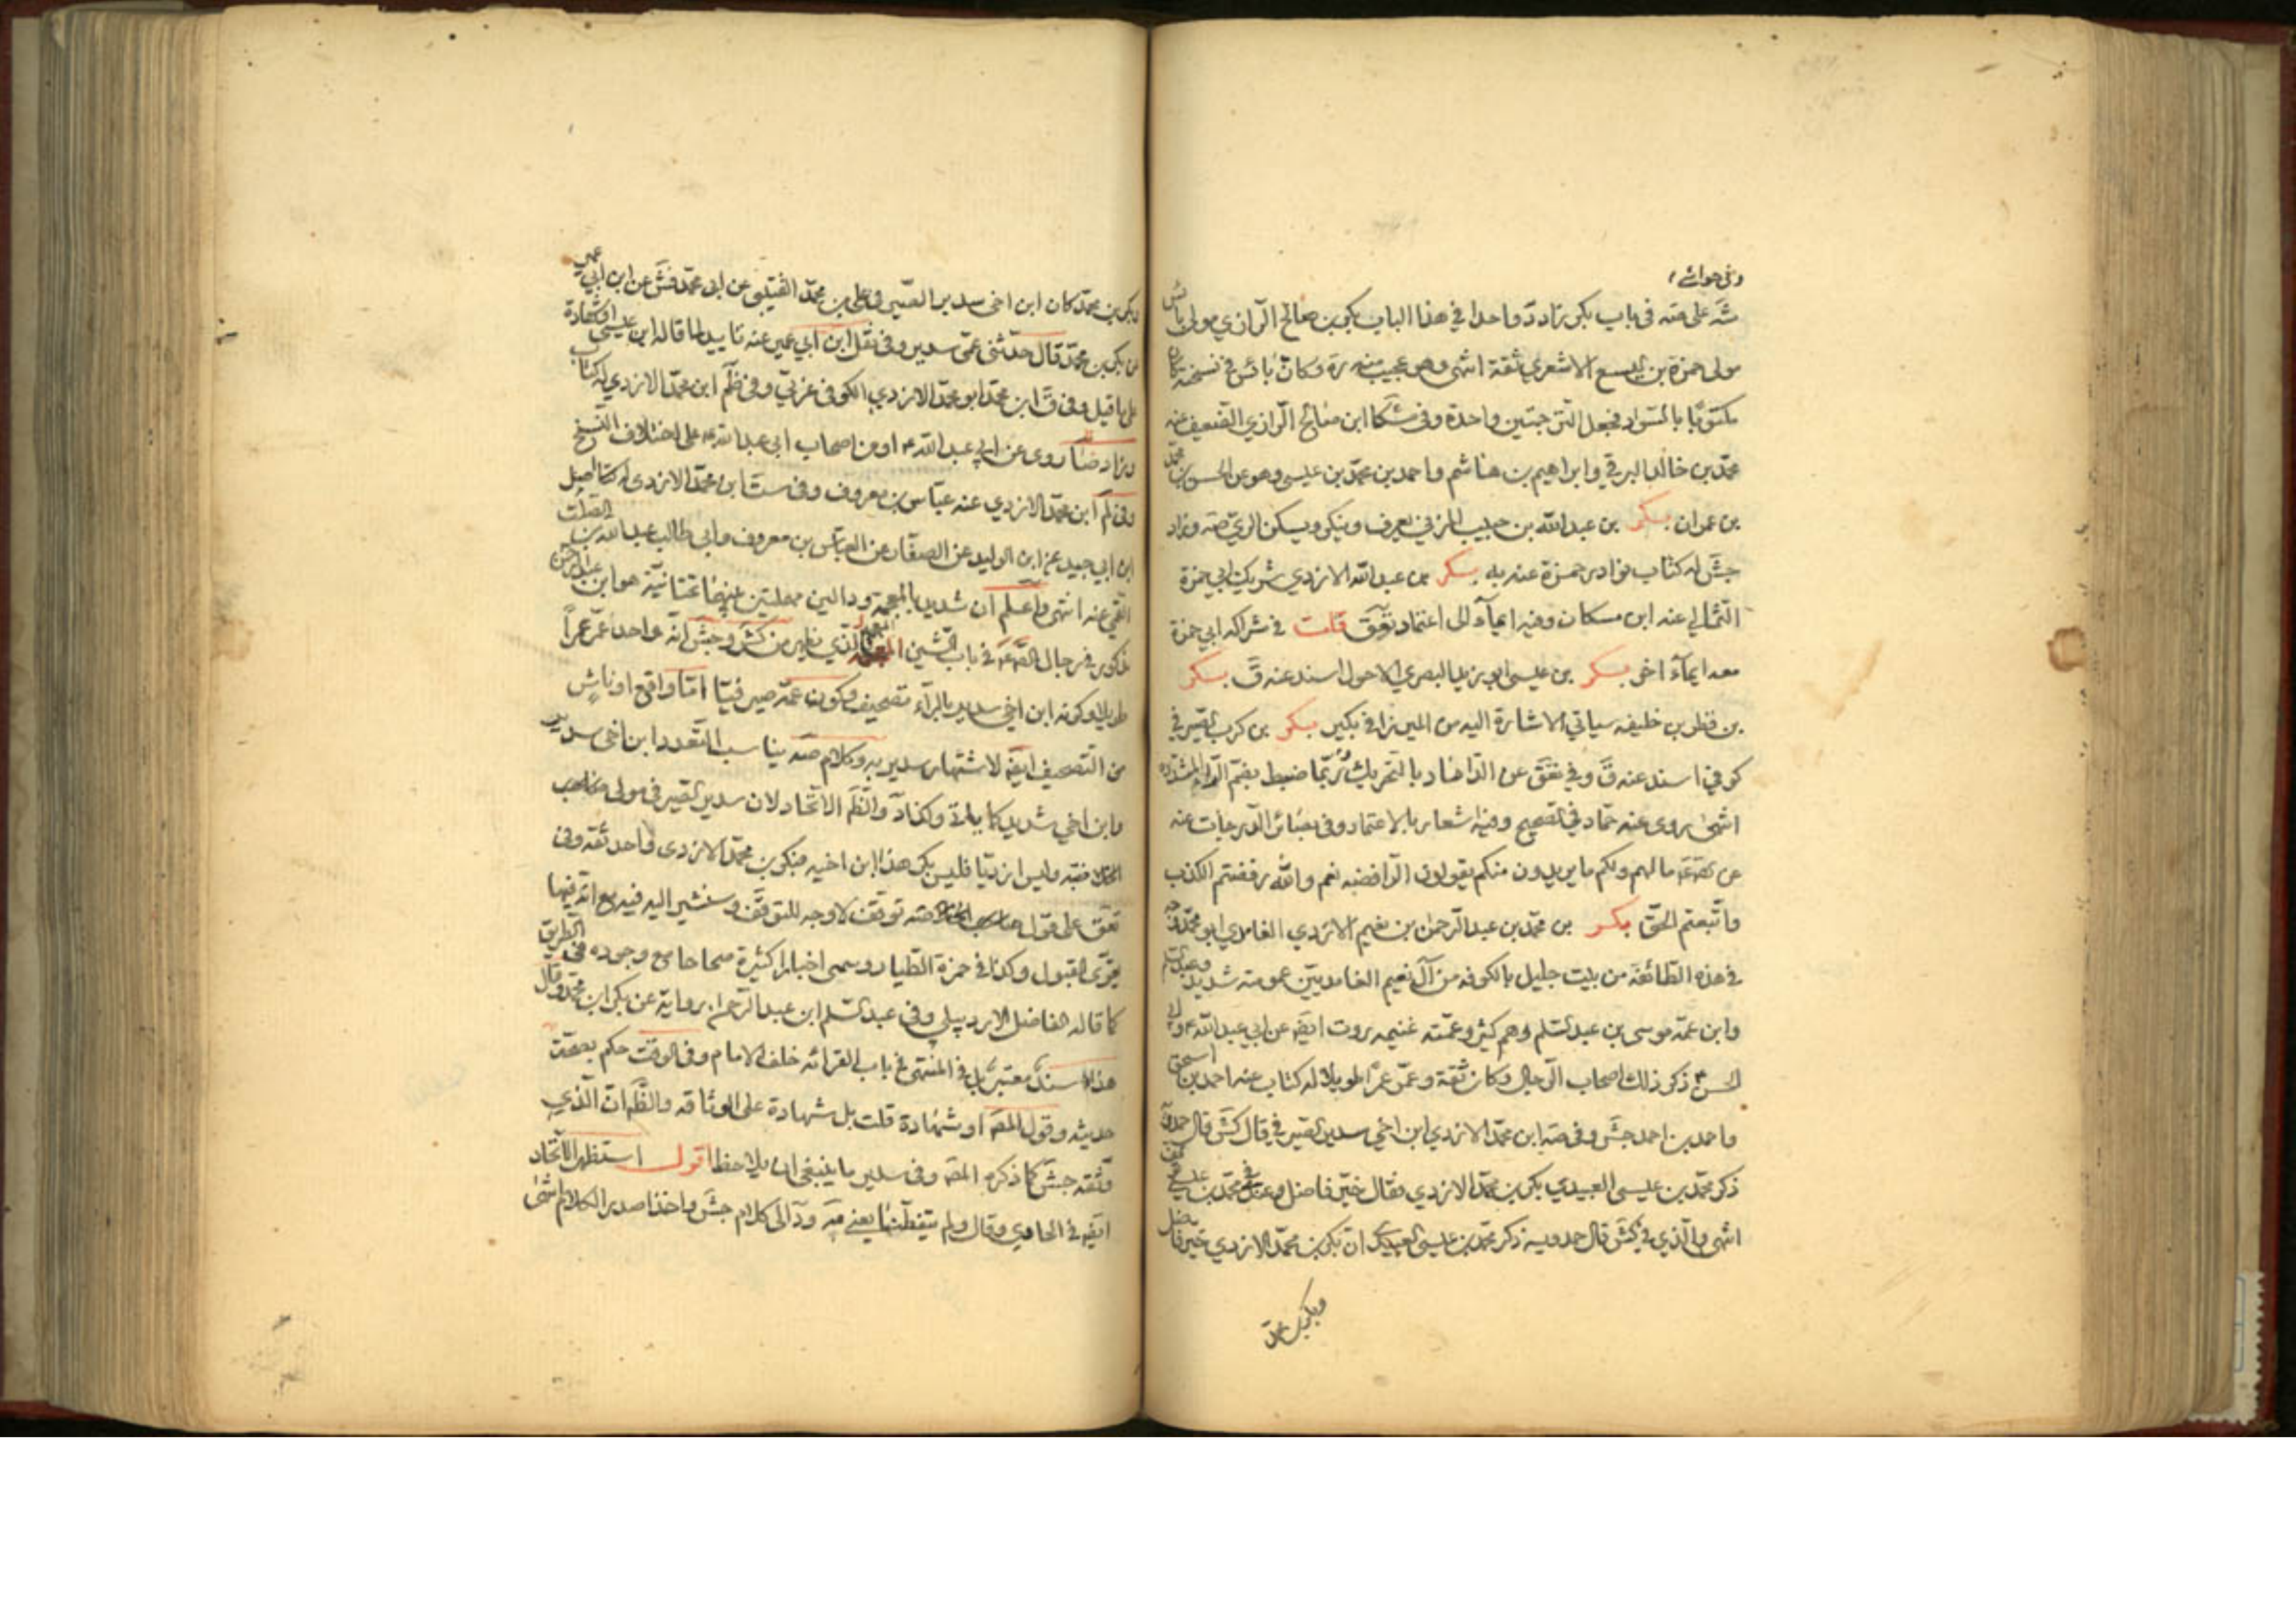 وفي حواشي
شه على صه في باب بكر زاد د واحدا في هذا الباب بكر بن صالح الرازي مولى بائس
مولى حمزة بن اليسع الاشعري ثقة انتهى وهو عجيب منه ره وكان بائس في نسخته كان
مكتوبا بالسواد فجعل الترجمتين واحدة وفي مشكا ابن صالح الرازي الضعيف عنه
محمد بن خالد البرقي وابراهيم بن هاشم واحمد بن محمد بن عيسى وهو عن الحسن بن محمد
بن عمران بكر بن عبد الله بن حبيب المزني يعرف وينكر ويسكن الري صه وزاد
جش له كتاب نوادر حمزة عنه به بكر بن عبد الله الازدي شريك ابي حمزة
الثمالي عنه ابن مسكان وفيه ايماء الى اعتماد تعق قلت في شراكه ابي حمزة
معه ايماء اخر بكر بن عيسى ابو زيد البصري الاحول اسند عنه ق بكر
بن فطر بن خليفه سياتي الاشارة اليه من الميرزا في بكير بكر بن كرب الصيرفي
كوفي اسند عنه ق وفي تعق عن الداماد بالتحريك وربما ضبط بضم الراء المشددة
انتهى روى عنه حماد في الصحيح وفيه اشعار بالاعتماد وفي بصائر الدرجات عنه
عن الصم مالهم ولكم ما يريدون منكم يقولون الرافضه نعم والله رفضتم الكذب
واتبعتم الحق بكر بن محمد بن عبد الرحمن بن نعيم الازدي الغامدي ابو محمد وجه
في هذه الطائفة من بيت جليل بالكوفه من آل نعيم الغامديين عمومته شديد وعبد السلم
وابن عمه موسى بن عبد السلم وهم كثير وعمته غنيمه روت ايضا عن ابي عبد الله وابي
الحسن ذكر ذلك اصحاب الرجال وكان ثقة وعمر عمرا طويلا له كتاب عنه احمد بن اسحق
واحمد بن احمد جش وفي صه ابن محمد الازدي ابن اخي سدير الصيرفي قال كش قال حمدويه
ذكر محمد بن عيسى العبيدي بكر بن محمد الازدي فقال خير فاضل وعندي في محمد بن عيسى توقف
انتهى والذي في كش قال حمدويه ذكر محمد بن عيسى العبيدي ان بكر بن محمد الازدي خير فاضل
وبكر بن محمد
وبكر بن محمد كان ابن اخي سدير الصيرفي علي بن محمد القتيبي عن ابي محمد فش عن ابن ابي عمير
عن بكر بن محمد قال حدثني عمي سدير وفي نقل ابن ابي عمير عنه تاييد لما قاله ابن عيسى او شهادة
على ما قيل وفي ق ابن محمد ابو محمد الازدي الكوفي عربي وفي ظم ابن محمد الازدي له كتاب
وزاد ضا روى عن ابي عبد الله او من اصحاب ابي عبد الله على اختلاف النسخ
وفي لم ابن محمد الازدي عنه عباس بن معروف وفي ست ابن محمد الازدي له اصل
ابن ابي جيد عن ابن الوليد عن الصفار عن العباس بن معروف وابي طالب عبد الله بن الصلت
القمي عنه انتهى واعلم ان شديد بالمعجمة ودالين مهملتين بينهما تحتانية هو ابن عبد الرحمن
مذكور في رجال الصم في باب الشين المعجمة والذي نظهر من كش وجش انه واحد عمر عمرا
طويلا وكونه ابن اخي سدير بالراء تصحيف وكون عمه صيرفيا اما واقع او ناش
من التصحيف ايضا لاشتهار سدير به وكلام صه يناسب التعدد ابن اخي سدير
وابن اخي شديد كما يأتي وكذا د والظم الاتحاد لان سدير الصيرفي مولى
ضبه وليس ازديا فليس بكر هذا ابن اخيه فبكر بن محمد الازدي واحد ثقه وفي
تعق على قول صه توقف لا وجه للتوقف وسنشير اليه فيه مع انه فيها
يقوى القبول وكذا في حمزة الطيار وسمى اخبارا كثيرة صحاحا مع وجوده في الطريق
كما قاله الفاضل الاردبيلي وفي عبد السلم ابن عبد الرحمن برواية عن بكر ابن محمد وقال
هذا سند معتبر بل في المنتهى في باب القرائه خلف الامام وفي الوقت حكم بصحة
حديثه وقول المص او شهادة قلت بل شهادة على الوثاقه والظم ان الذي
وثقه جش كما ذكره المص وفي سدير ما ينبغي ان يلاحظ اقول استظهر الاتحاد
ايضا في الحاوي وقال ولم يتفطنا يعني مه ود الى كلام جش واخذا صدر الكلام انتهى